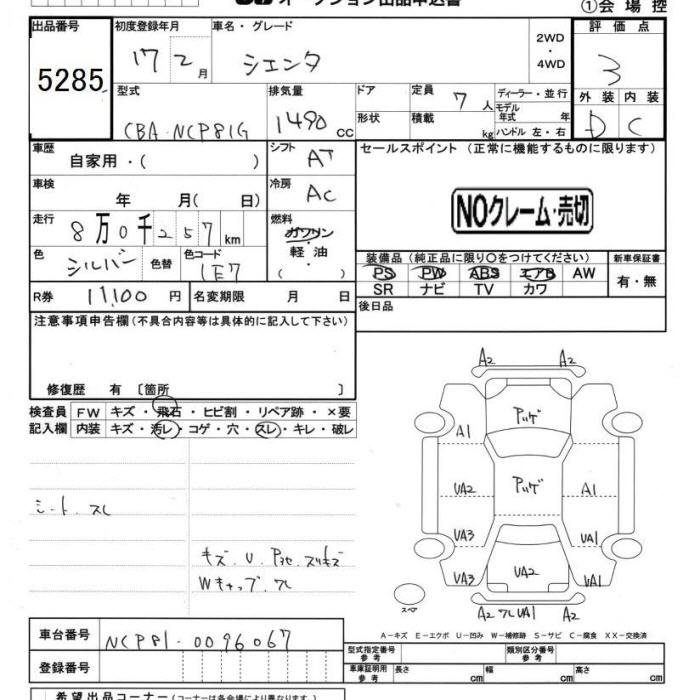 オークション出品申込書
①会場控
出品番号
5285
初度登録年月
17 2月
車名・グレード
シエンタ
2WD
・
4WD
評価点
3
外装 内装
D C
型式
CBA-NCP81G
排気量
1490cc
ドア
形状
定員
7人
積載
kg
ディーラー・並行
モデル
年式 年
ハンドル 左・右
車歴
自家用・( )
シフト
AT
セールスポイント (正常に機能するものに限ります)
NOクレーム・売切
車検
年 月(日)
冷房
AC
走行
8万0千257km
燃料
ガソリン
・
軽油
・
( )
色
シルバー
色替
色コード
1E7
R券 11,100円
名変期限 月 日
装備品 (純正品に限り○をつけてください)
PS PW ABS エアB AW
SR ナビ TV カワ
新車保証書
有・無
後日品
注意事項申告欄 (不具合内容等は具体的に記入して下さい)
修復歴 有 〔箇所 〕
検査員
記入欄
FW キズ・飛石・ヒビ割・リペア跡・×要
内装 キズ・汚レ・コゲ・穴・スレ・キレ・破レ
シート.スレ
Wキャップ.ワレ
A2 A2
アッゲ
A1
UA2
アッゲ
A1
UA3
UA1
UA3
UA2
UA1
スペア
A2 ワレ UA1 A2
A-キズ E-エクボ U-凹み W-補修跡 S-サビ C-腐食 XX-交換済
車台番号
NCP81-0096067
登録番号
型式指定番号
参考
類別区分番号
参考
車庫証明用
参考
長さ cm
幅 cm
高さ cm
希望出品コーナー (コーナーは各会場により異なります。)